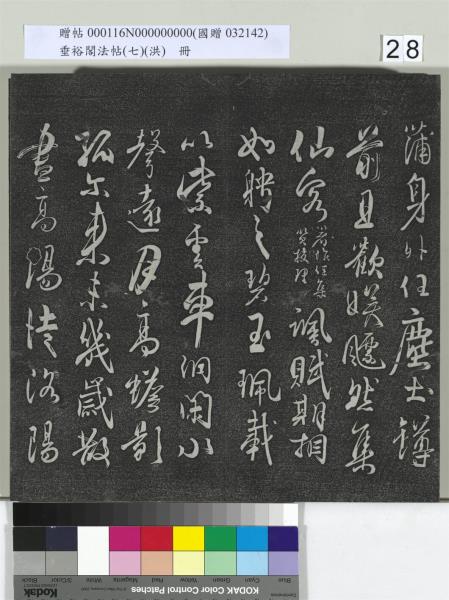 贈帖 000116N000000000(國贈 032142)
垂裕閣法帖(七)(洪) 冊
28
蒲身外任塵土罇
前且歡娛飄然集
仙客著作任集賢校理諷賦期相
如聘之碧玉珮載
以紫雲車洞閉水
聲遠月高蟾影
孤尔來未幾歲散
盡高陽徒洛陽
Blue Cyan Green Yellow Red Magenta White 3/Color Black
KODAK Color Control Patches